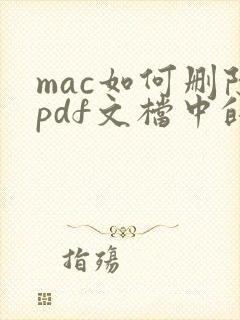 mac如何删
pdf文檔中
指殤